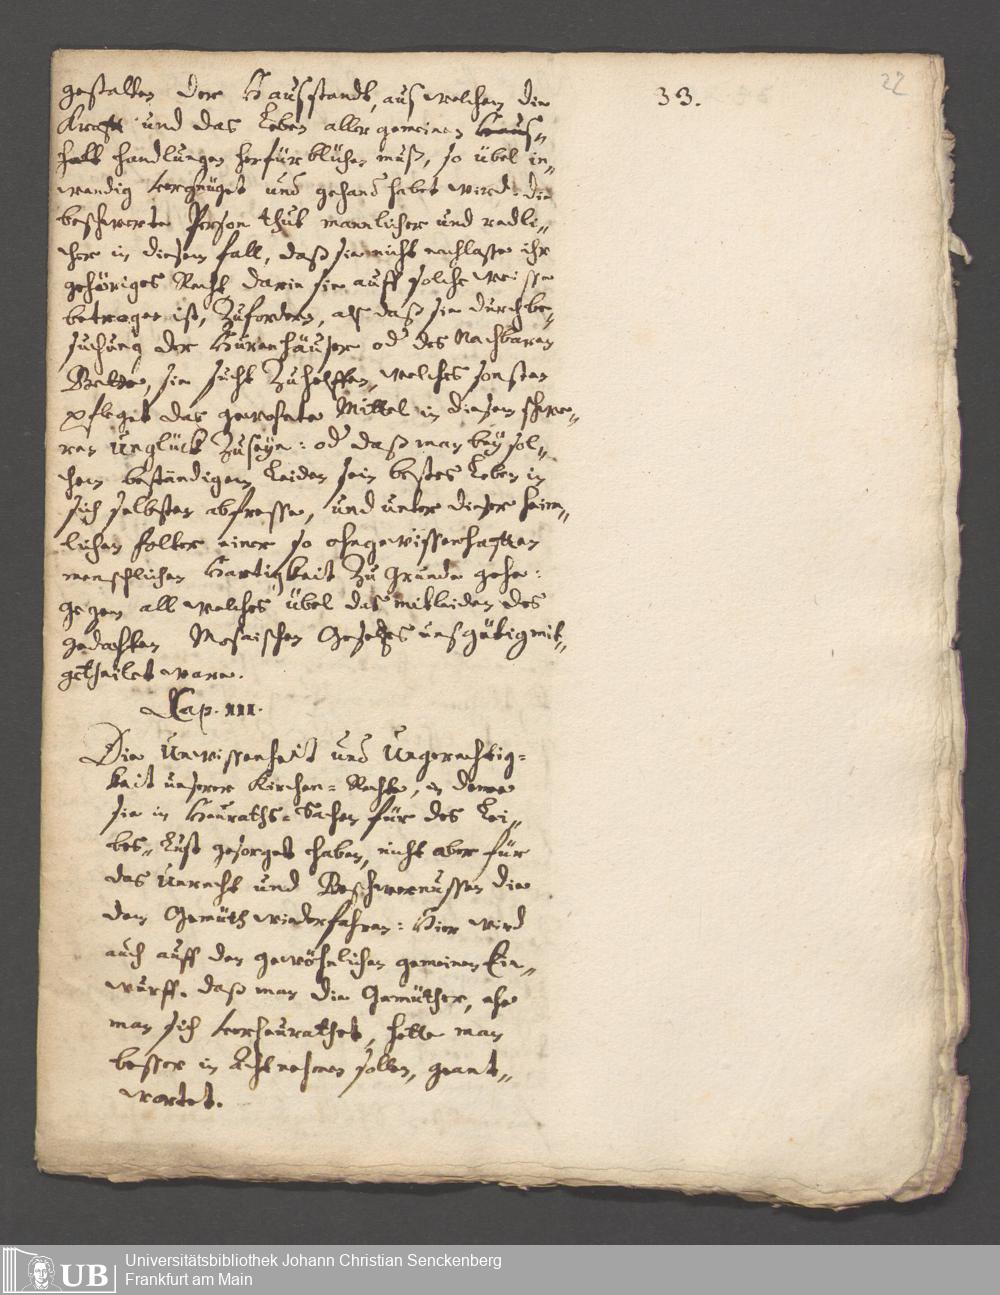 33.
22
gestalten der Hausstandt, aus welchem die
Krafft und das Leben aller gemeinen Haus-„
halt handlungen herfür blühen muß, so übel in„
wendig vergnüget und gehandhabet wird: die
beschwerte Person thut mannlicher und redli„
cher in diesem fall, daß sie nicht nachlasse ihr
gehöriges Recht darin sie auff solche weisse
betrogen ist, zufordern, als daß sie durch be„
suchung der Hurenhäuser od des Nachbaren
Bette, sie sucht zuhelffen, welches sonsten
pfleget das gewohnte Mittel in diesem schwe„
ren Unglück zuseyn: od daß man bey sol„
chem beständigem Leiden sein bestes Leben in
sich selbsten abfresse, und unter dieser heim„
lichen folter einer so ohngewissenhafften
menschlichen Hartigkeit zu grunde gehe:
gegen all welches übel das mitleiden des
gedachten Mosaischen Gesetzes uns gütig mit„
getheilet ware.
Cap. III.
Die Unwissenheit und Ungerechtig=
keit unserer Kirchen=Rechte, in deme
sie in Heuraths=Sachen für des Lei„
bes„Lust gesorget haben, nicht aber für
das Unrecht und Beschwernussen die
dem Gemüth wiederfahren: Hier wird
auch auff den gewöhnlichen gemeinen Ein„
wurff. daß man die Gemüther, ehe
man sich verheurathet, hette man
besser in Acht nehmen sollen, geant„
wortet.
UB
Universitätsbibliothek Johann Christian Senckenberg
Frankfurt am Main